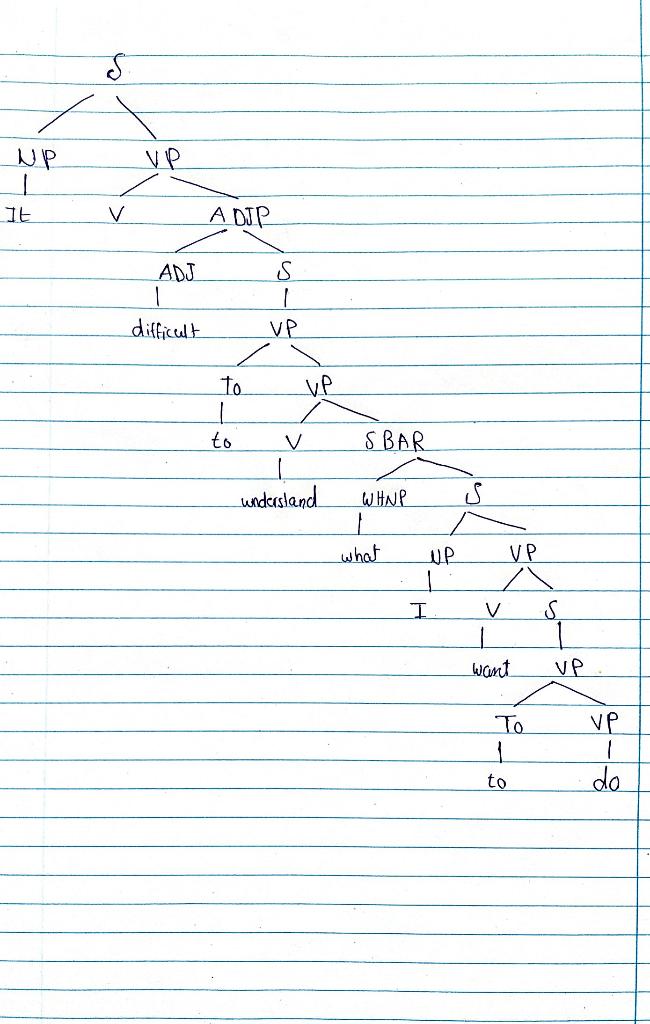 S
NP VP
It V ADJP
ADJ S
difficult VP
To VP
to V SBAR
understand WHNP S
what NP VP
I V S
want VP
To VP
to do